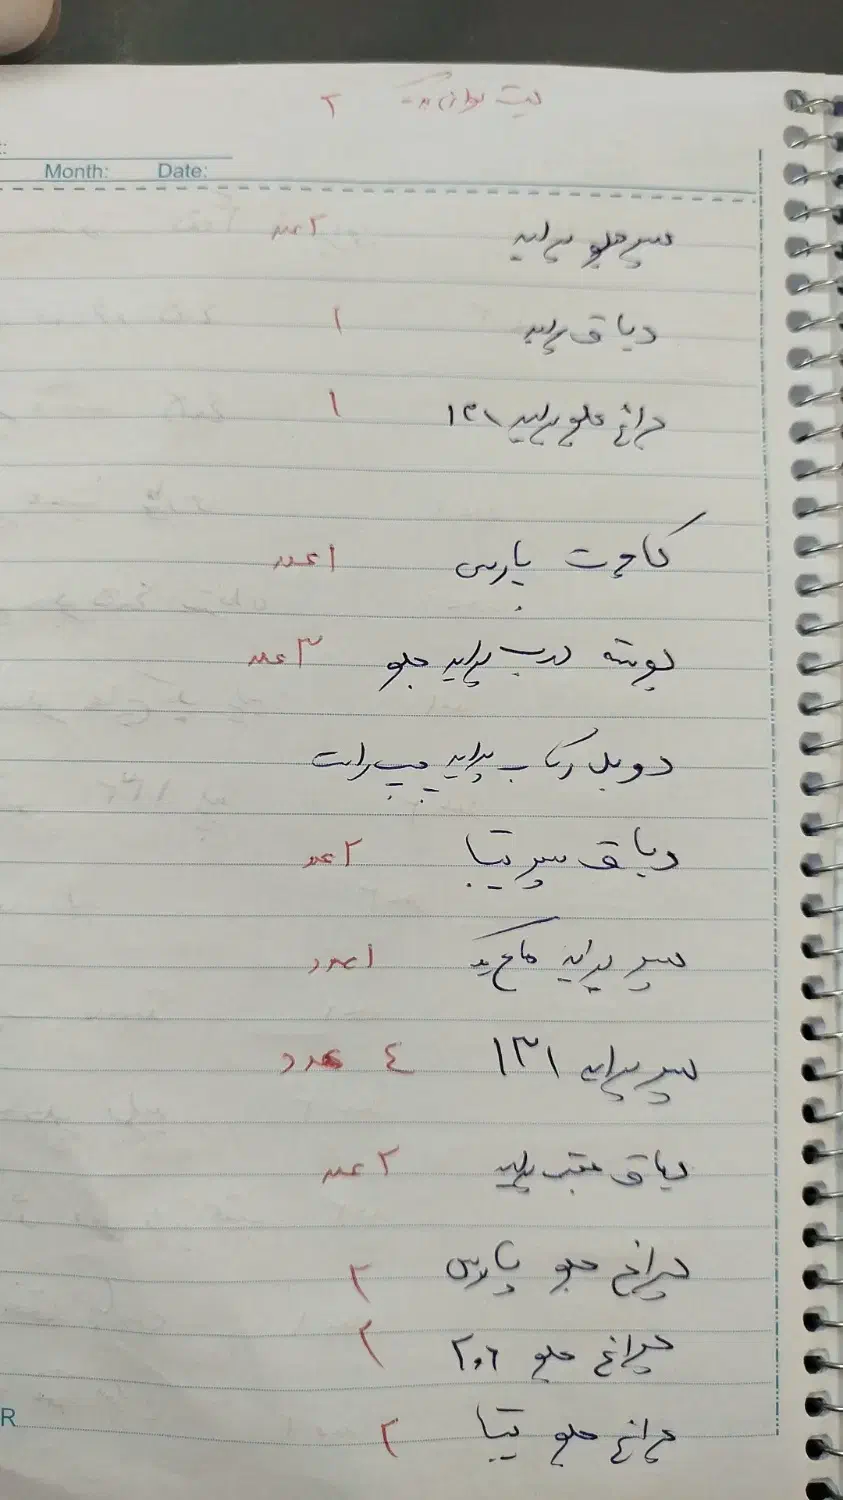 Month: Date:
سپر جلو پراید ۲ عدد
دیاق پراید ۱
چراغ جلو پراید ۱۳۱ ۱
پارس ۱ عدد
پوسته درب پراید جلو ۳ عدد
دوبل رکاب پراید چپ راست
دیاق سپر تیبا ۲ عدد
سپر پراید ۱ عدد
سپر پراید ۱۳۱ ٤ عدد
دیاق عقب پراید ۲ عدد
چراغ جلو پارس ۲
چراغ جلو ۲۰۶ ۲
چراغ جلو تیبا ۲
R